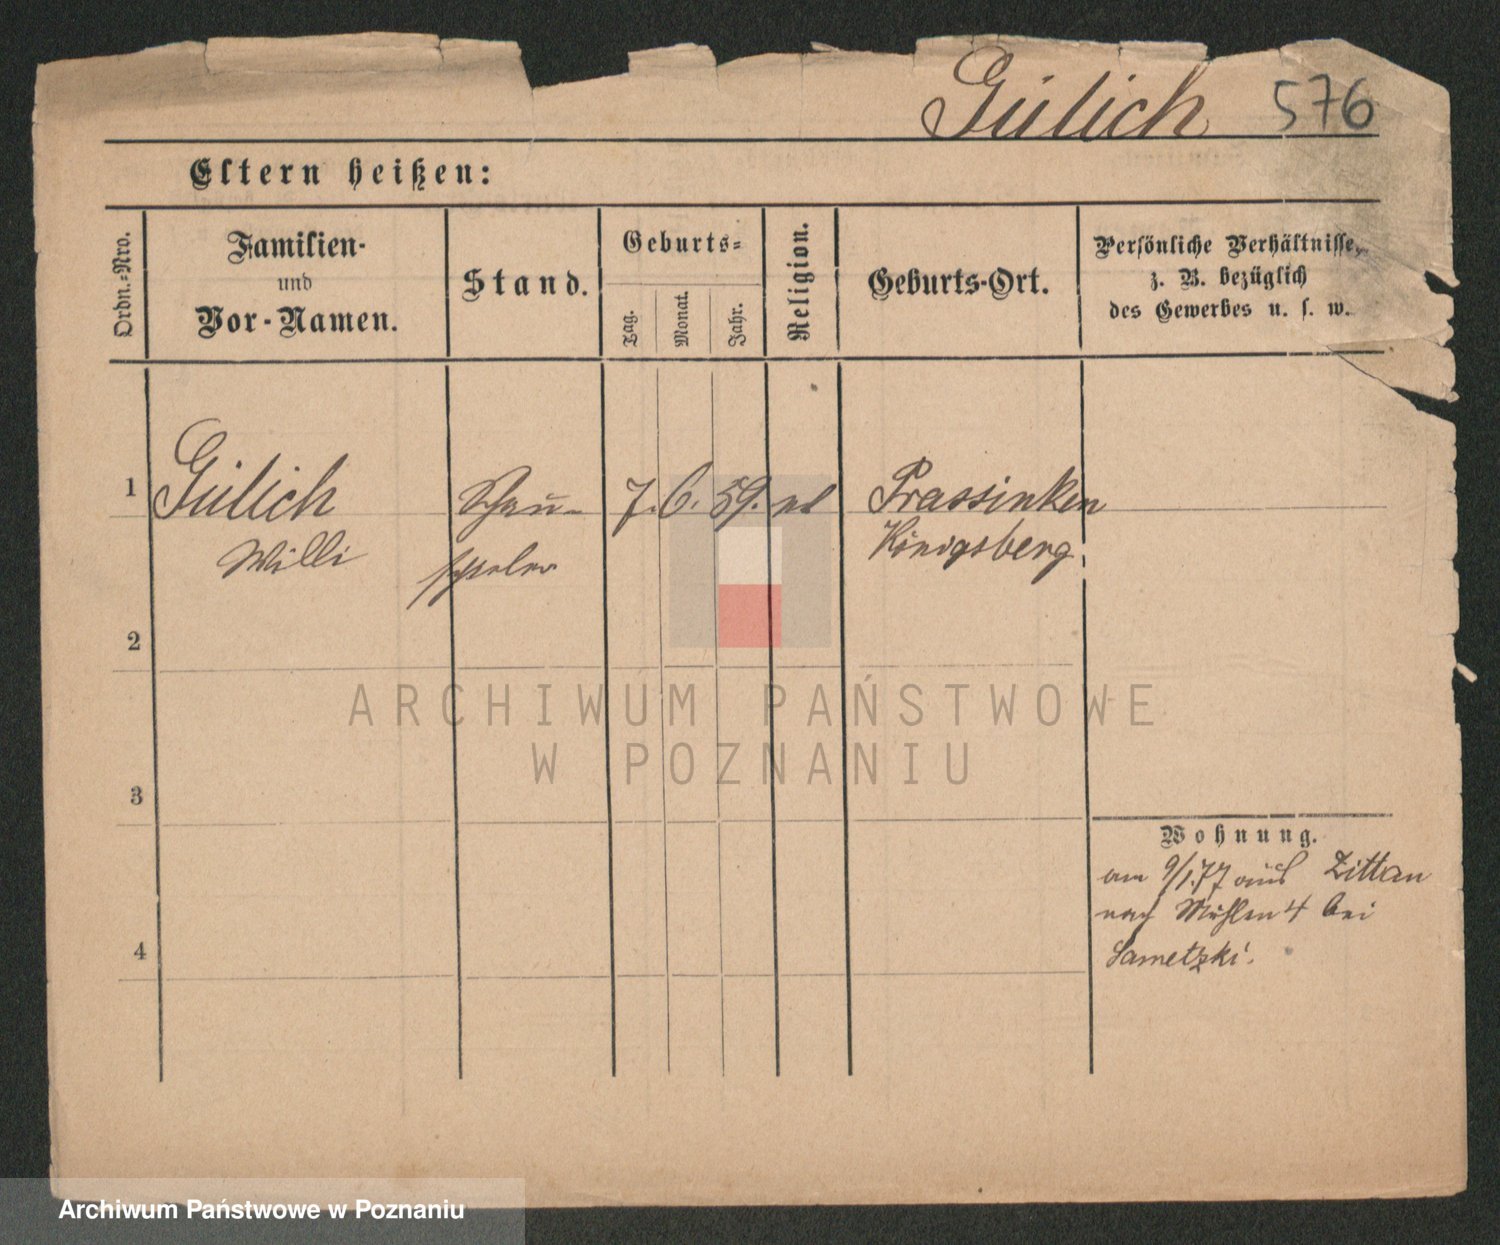 Gülich 576
Eltern heißen:
Ordn.-Nro.
Familien-
und
Vor-Namen.
Stand.
Geburts-
Tag.
Monat.
Jahr.
Religion.
Geburts-Ort.
Persönliche Verhältnisse,
z. B. bezüglich
des Gewerbes u. s. w.
1 Gülich Schau- 7. 6. 59. Prassinken
Willi spieler Königsberg
2
3
4
Wohnung.
am 9/1.77 aus Zittau
nach Mühlen 4 bei
Sametzki.
ARCHIWUM PAŃSTWOWE
W POZNANIU
Archiwum Państwowe w Poznaniu